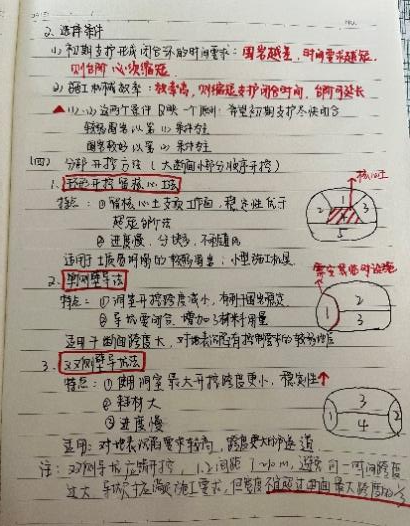 2. 选择条件
(1) 初期支护形成闭合环的时间要求：围岩越差，时间要求越短，
则台阶必须缩短.
(2) 施工机械效率：效率高，则缩短支护闭合时间，台阶可延长
▲(1)、(2)这两个条件反映一个原则：希望初期支护尽快闭合
软弱围岩以第(1)条件为主
围岩较好以第(2)条件为主
(四) 分部开挖方法 (大断面小部分顺序开挖)
1. 环形开挖留核心土法
核心土
特点：① 留核心土支挡工作面，稳定性优于
超短台阶法
② 进度慢，分块多，不利
适用于土质 的软弱围岩；小型施工机具
1
2
3
5
2. 单侧壁导坑法
需安装临时设施
特点：① 洞室开挖跨度减小，有利于围岩稳定
② 导坑要闭合，增加了材料用量
适用于断面跨度大，对地表沉陷有控制要求的软弱
1
2
3
3. 双侧壁导坑法
特点：① 期洞室最大开挖跨度更小，稳定性↑
② 耗材大
③ 进度慢
适用：对地表沉陷要求较高，跨度更大的 道
1
2
3
4
注：双侧导坑应断开挖，1.2间距7~10m，避免同一时间跨度
过大，导坑尺寸应满足施工要求，但宽度不超过断面最大跨度的⅓